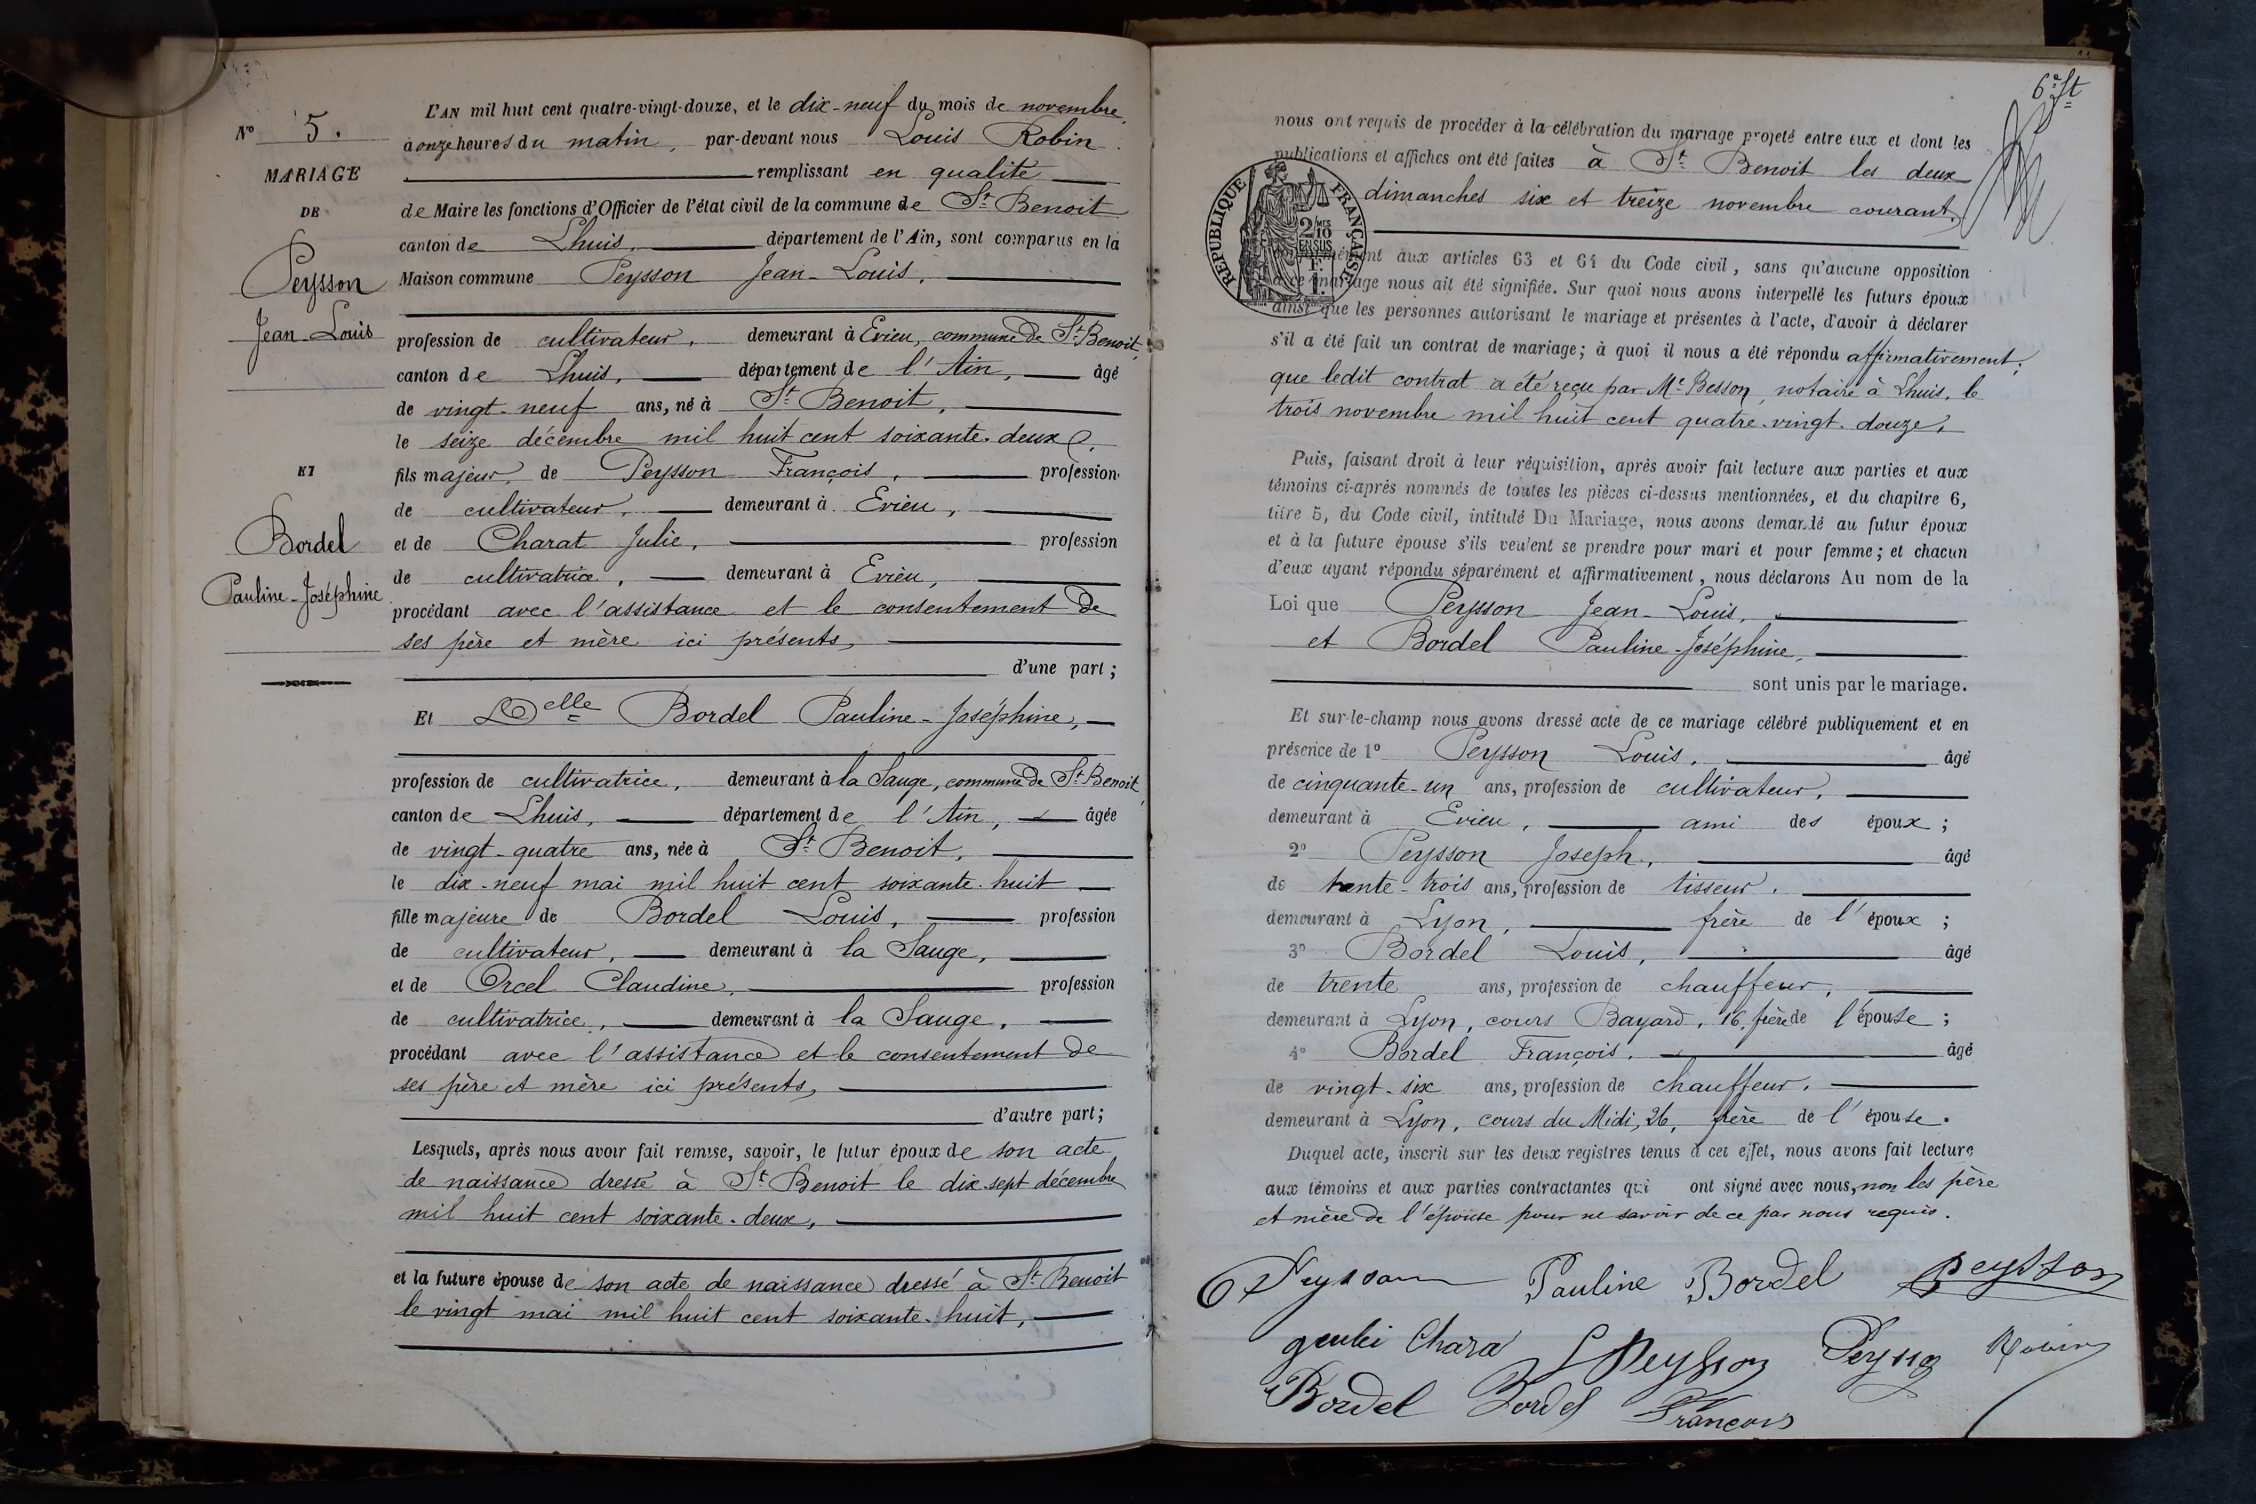 N° 5.
MARIAGE
DE
Peysson
Jean-Louis
ET
Bordel
Pauline-Joséphine
L'AN mil huit cent quatre-vingt-douze, et le dix-neuf du mois de novembre,
à onze heures du matin, par-devant nous Louis Robin.
remplissant en qualité
de Maire les fonctions d'Officier de l'état civil de la commune de St Benoit
canton de Lhuis, département de l'Ain, sont comparus en la
Maison commune Peysson Jean-Louis,
profession de cultivateur, demeurant à Evieu, commune de St Benoit,
canton de Lhuis, département de l'Ain, âgé
de vingt-neuf ans, né à St Benoit,
le seize décembre mil huit cent soixante-deux,
fils majeur de Peysson François, profession
de cultivateur, demeurant à Evieu,
et de Charat Julie, profession
de cultivatrice, demeurant à Evieu,
procédant avec l'assistance et le consentement de
ses père et mère ici présents,
d'une part;
Et Delle Bordel Pauline-Joséphine,
profession de cultivatrice, demeurant à la Sauge, commune de St Benoit,
canton de Lhuis, département de l'Ain, âgée
de vingt-quatre ans, née à St Benoit,
le dix-neuf mai mil huit cent soixante-huit
fille majeure de Bordel Louis, profession
de cultivateur, demeurant à la Sauge,
et de Orcel Claudine, profession
de cultivatrice, demeurant à la Sauge,
procédant avec l'assistance et le consentement de
ses père et mère ici présents,
d'autre part;
Lesquels, après nous avoir fait remise, savoir, le futur époux de son acte
de naissance dressé à St Benoit le dix-sept décembre
mil huit cent soixante-deux,
et la future épouse de son acte de naissance dressé à St Benoit
le vingt mai mil huit cent soixante-huit,
nous ont requis de procéder à la célébration du mariage projeté entre eux et dont les
publications et affiches ont été faites à St Benoit les deux
dimanches six et treize novembre courant,
RÉPUBLIQUE FRANÇAISE
2/10 EN SUS
1 F.
conformément aux articles 63 et 64 du Code civil, sans qu'aucune opposition
à ce mariage nous ait été signifiée. Sur quoi nous avons interpellé les futurs époux
ainsi que les personnes autorisant le mariage et présentes à l'acte, d'avoir à déclarer
s'il a été fait un contrat de mariage; à quoi il nous a été répondu affirmativement;
que ledit contrat a été reçu par Me Besson, notaire à Lhuis, le
trois novembre mil huit cent quatre-vingt-douze,
Puis, faisant droit à leur réquisition, après avoir fait lecture aux parties et aux
témoins ci-après nommés de toutes les pièces ci-dessus mentionnées, et du chapitre 6,
titre 5, du Code civil, intitulé Du Mariage, nous avons demandé au futur époux
et à la future épouse s'ils veulent se prendre pour mari et pour femme; et chacun
d'eux ayant répondu séparément et affirmativement, nous déclarons Au nom de la
Loi que Peysson Jean-Louis,
et Bordel Pauline-Joséphine,
sont unis par le mariage.
Et sur-le-champ nous avons dressé acte de ce mariage célébré publiquement et en
présence de 1° Peysson Louis, âgé
de cinquante-un ans, profession de cultivateur,
demeurant à Evieu, ami des époux;
2° Peysson Joseph, âgé
de trente-trois ans, profession de tisseur,
demeurant à Lyon, frère de l'époux;
3° Bordel Louis, âgé
de trente ans, profession de chauffeur,
demeurant à Lyon, cours Bayard, 16, frère de l'épouse;
4° Bordel François, âgé
de vingt-six ans, profession de chauffeur,
demeurant à Lyon, cours du Midi, 26, frère de l'épouse.
Duquel acte, inscrit sur les deux registres tenus à cet effet, nous avons fait lecture
aux témoins et aux parties contractantes qui ont signé avec nous, non les père
et mère de l'épouse pour ne savoir de ce par nous requis.
Peysson Pauline Bordel Peysson
Chara L Peysson Peysson Robin
Bordel Bordel François